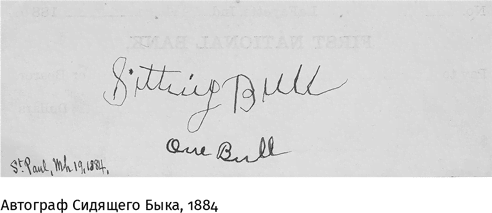 FIRST NATIONAL BANK,
Sitting Bull
One Bull
St. Paul, Mh 19, 1884.
Автограф Сидящего Быка, 1884